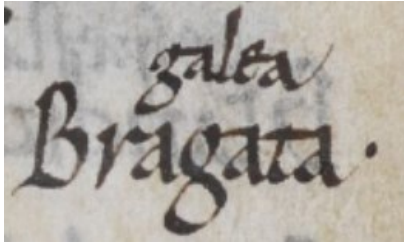 galea
Bragata.